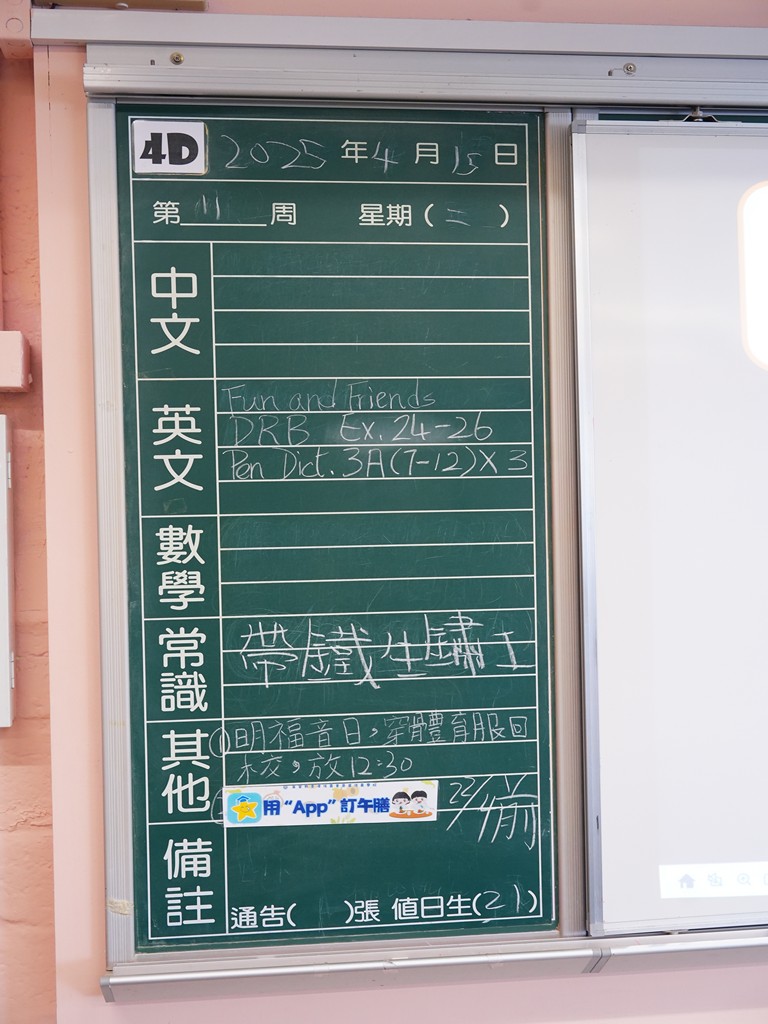 4D 2025年4月15日
第11周 星期(二)
中文
英文
Fun and Friends
DRB Ex. 24-26
Pen Dict. 3A(7-12)X3
數學
常識
帶鐵生鏽工
其他
①明福音日,穿體育服回
校,放12:30
用“App”訂午膳 22/4前
備註
通告( )張 值日生(21)